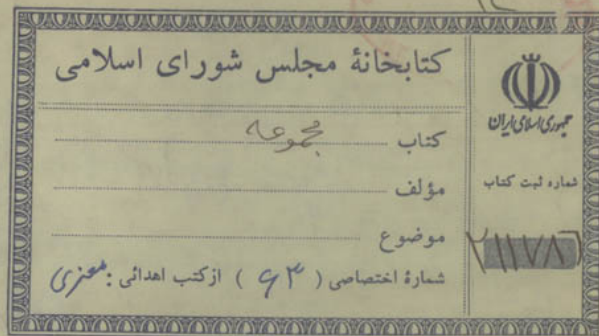 کتابخانهٔ مجلس شورای اسلامی
کتاب مجموعه
مؤلف
موضوع
شمارهٔ اختصاصی ( ۶۳ ) از کتب اهدائی :
جمهوری اسلامی ایران
شماره ثبت کتاب
۲۱۱۷۸۶